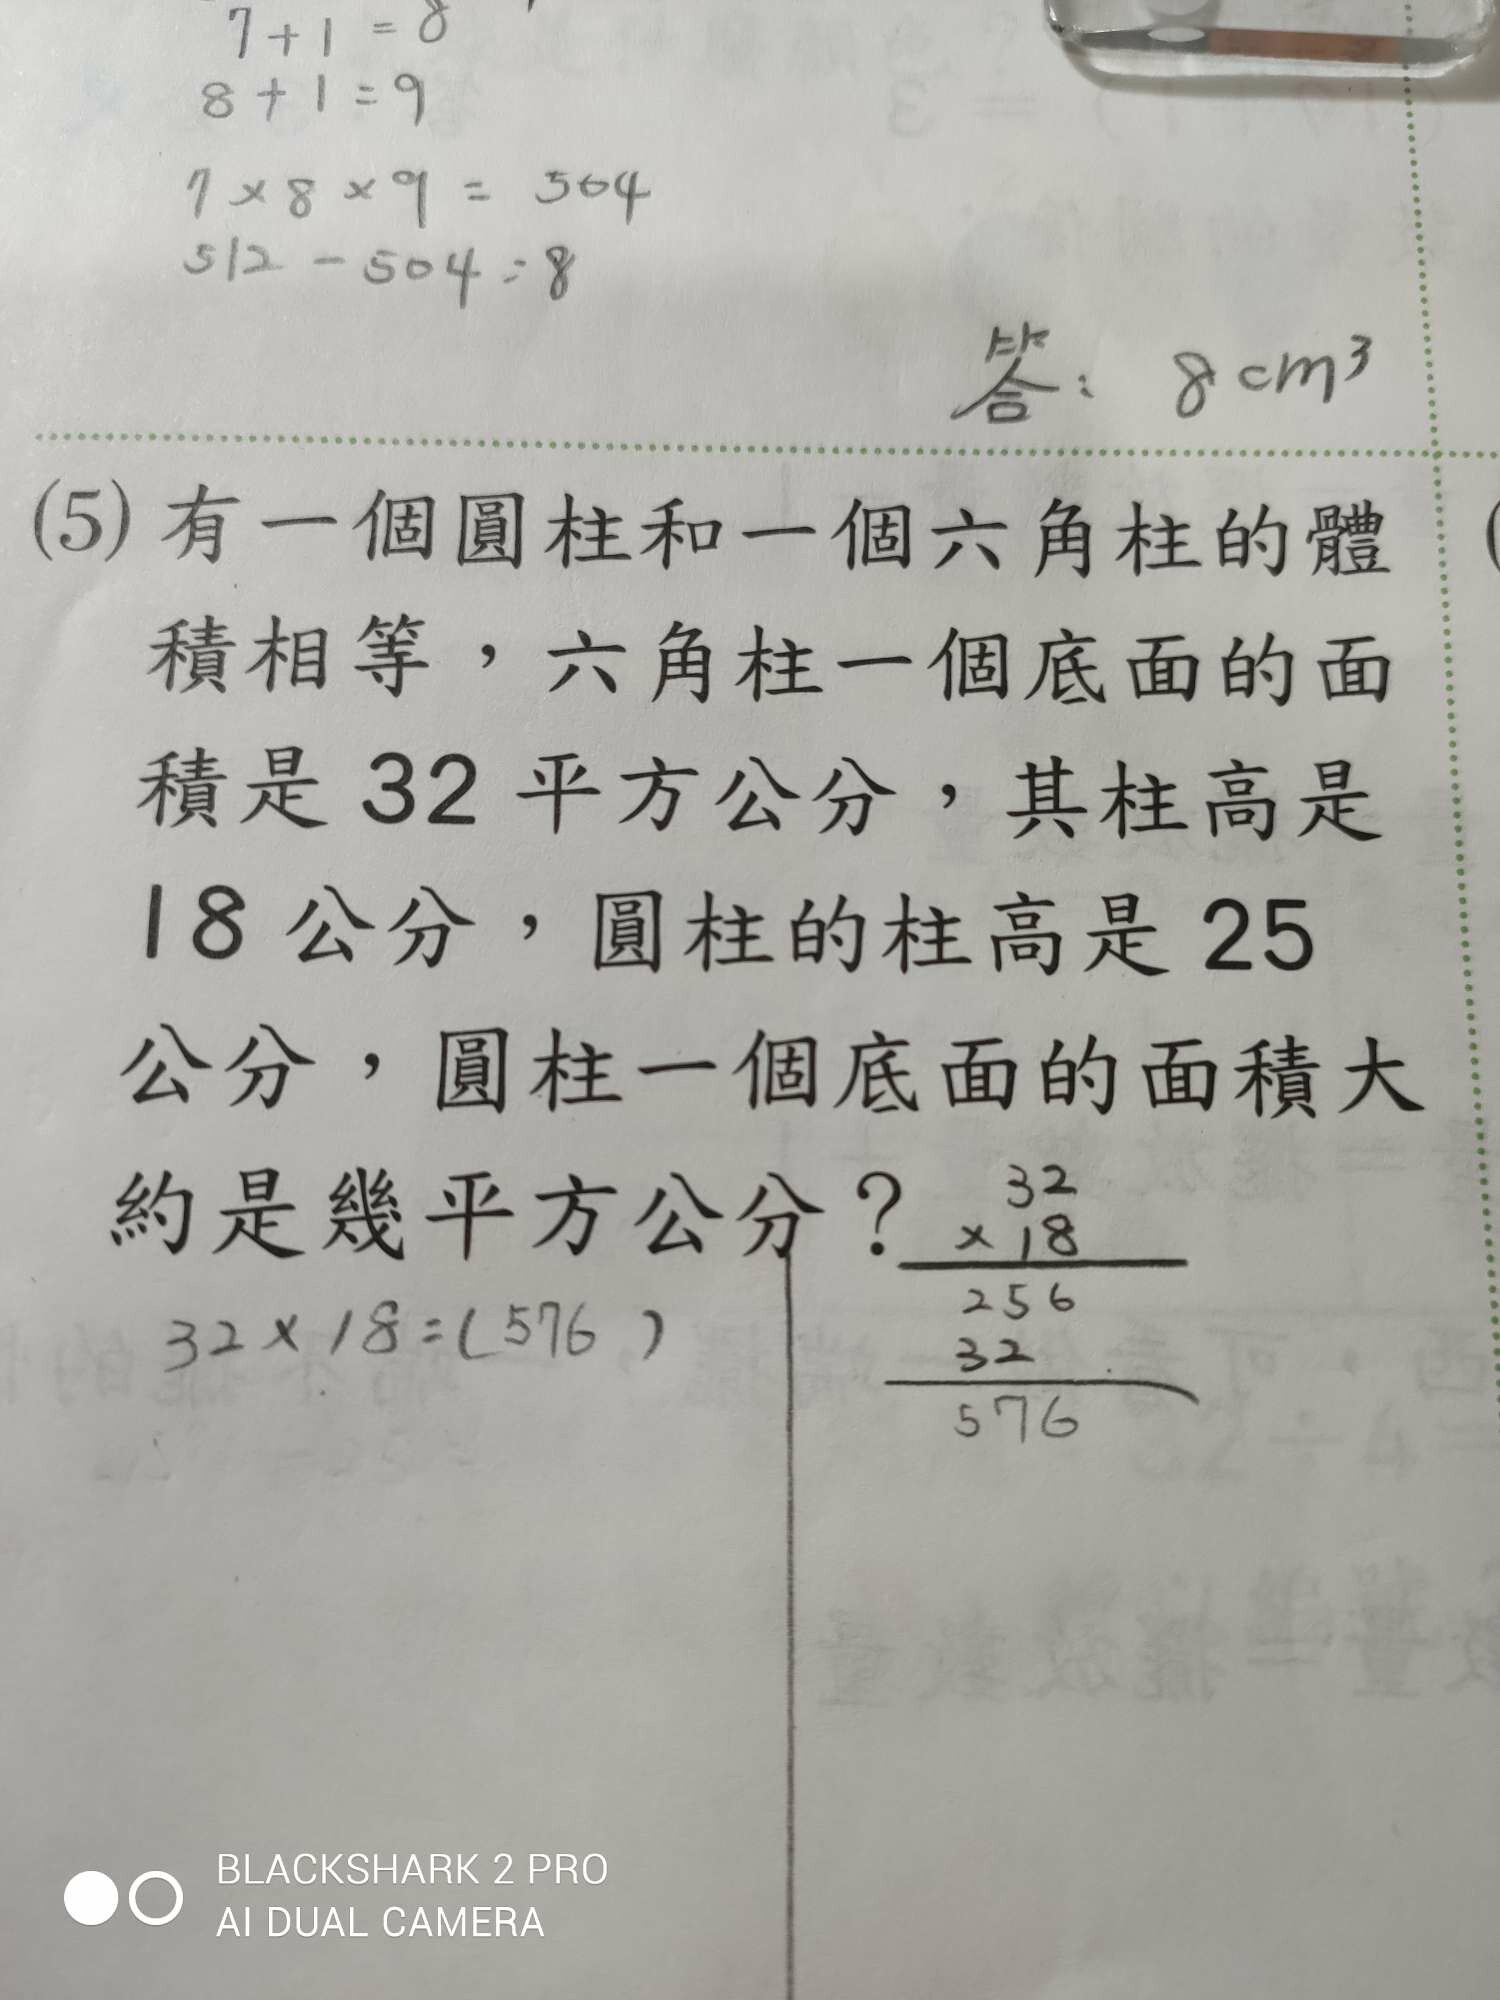 7+1=8
8+1=9
7×8×9=504
512-504=8
答：8cm³
(5)有一個圓柱和一個六角柱的體
積相等，六角柱一個底面的面
積是32平方公分，其柱高是
18公分，圓柱的柱高是25
公分，圓柱一個底面的面積大
約是幾平方公分？
32×18=(576)
32
×18
256
32
576
BLACKSHARK 2 PRO
AI DUAL CAMERA